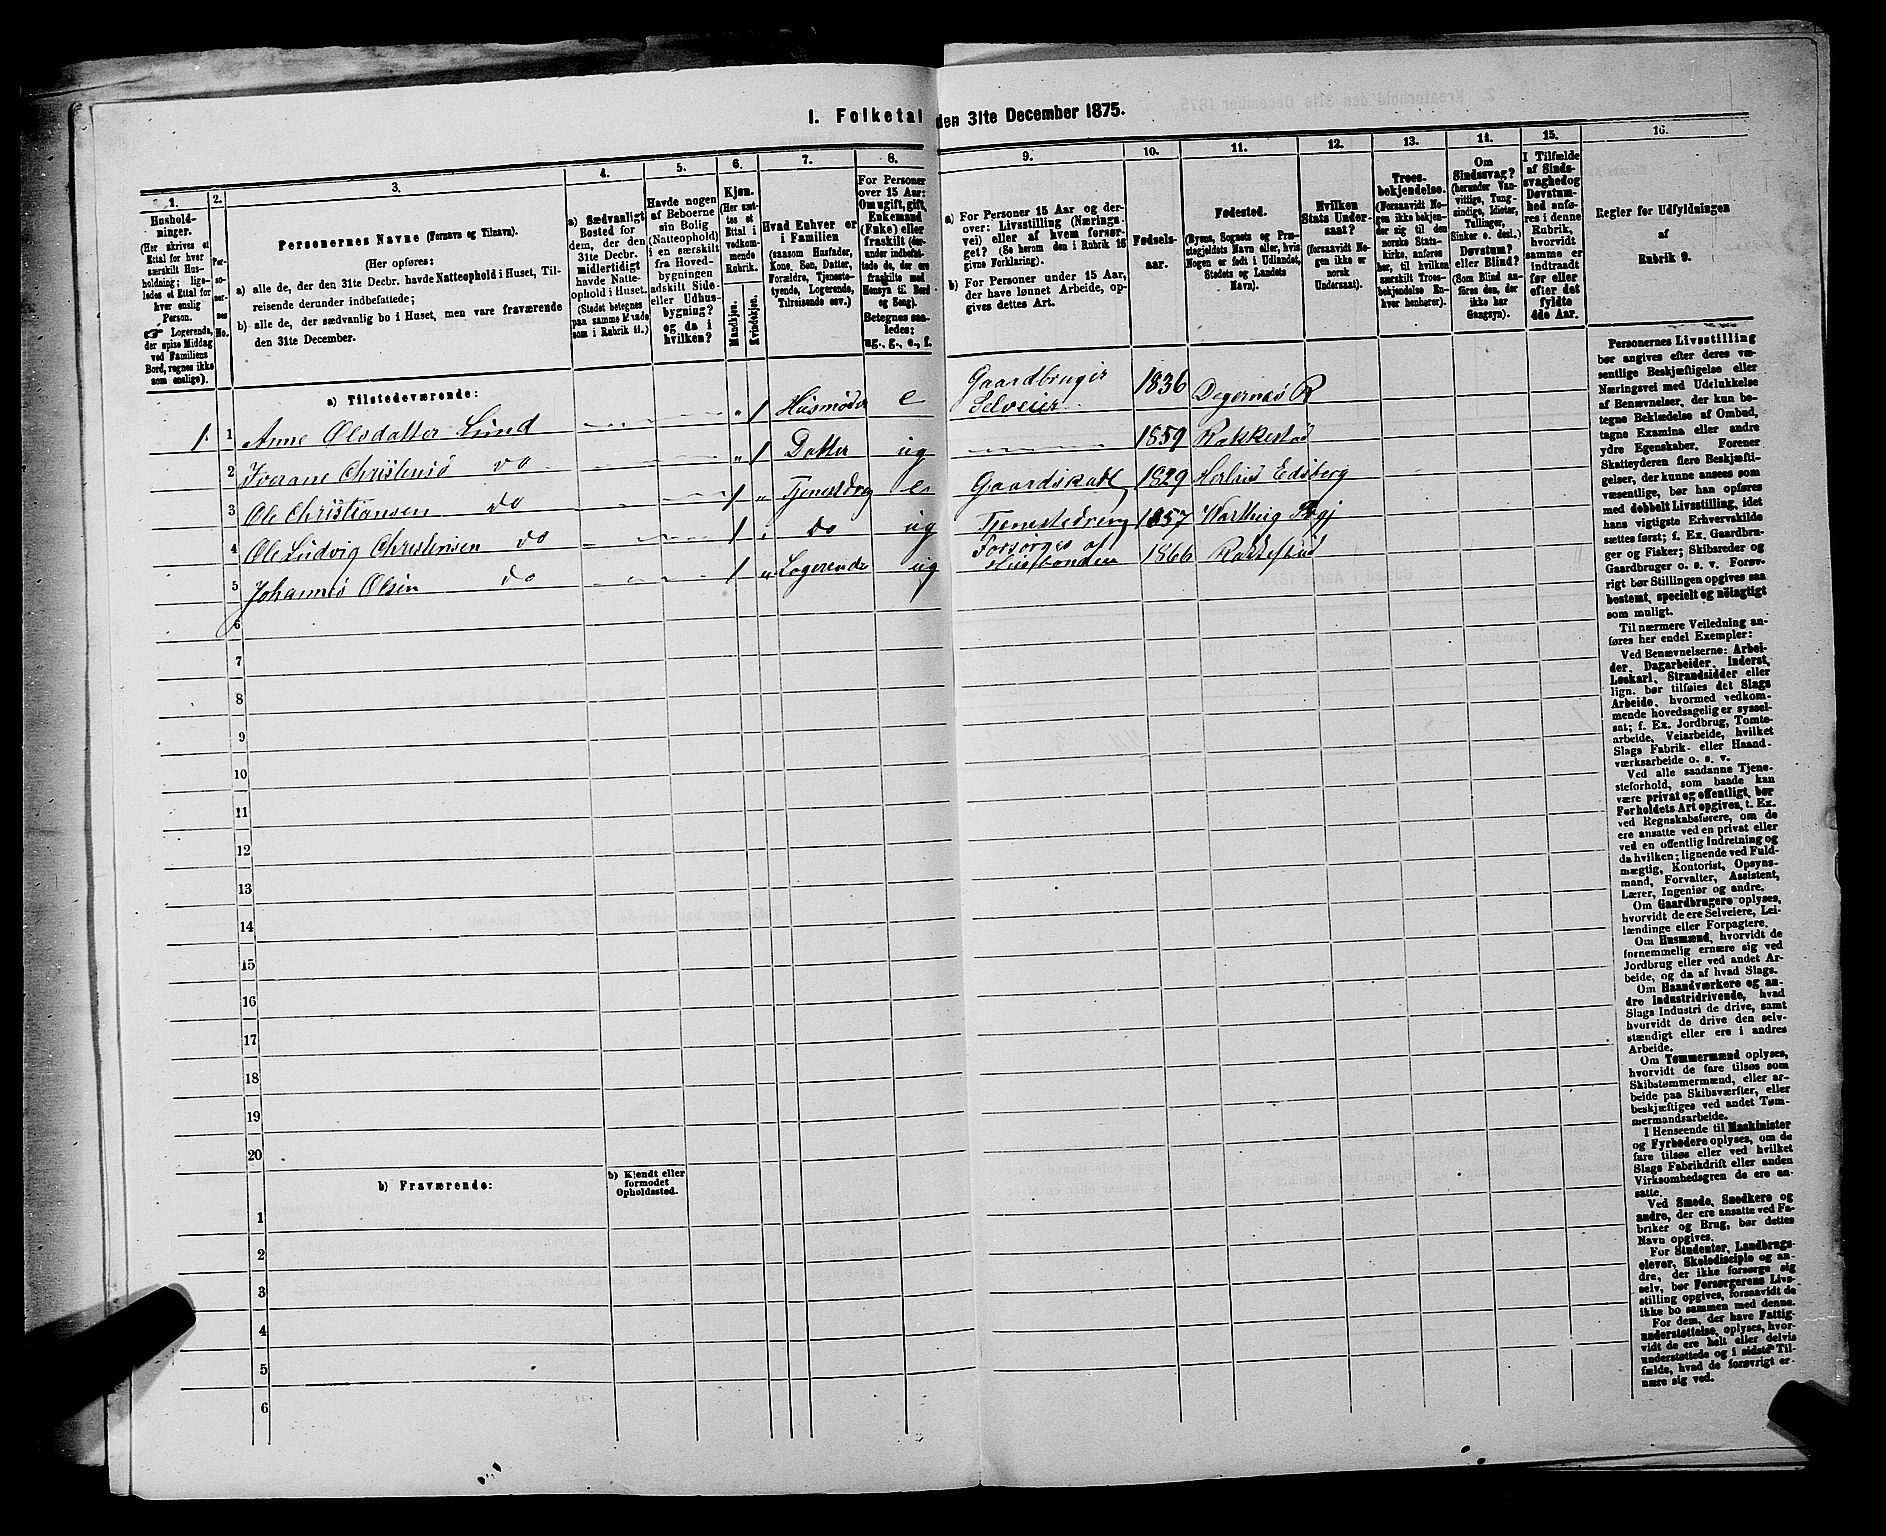 1. Folketal den 31te December 1875.
1.
Hushold-
ninger.
(Her skrives et
Ettal for hver
særskilt Hus-
holdning; lige-
ledes et Ettal for
hver enslig
Person.
☞ Logerende,
der spise Middag
ved Familiens
Bord, regnes ikke
som enslige).
2.
Personernes No.
3.
Personernes Navne (Fornavn og Tilnavn).
(Her opføres:
a) alle de, der den 31te Decbr. havde Natteophold i Huset, Til-
reisende derunder indbefattede;
b) alle de, der sædvanlig bo i Huset, men vare fraværende
den 31te December.
4.
a) Sædvanligt
Bosted for
dem, der den
31te Decbr.
midlertidigt
havde Natte-
ophold i Huset.
(Stedet betegnes
paa samme Maade
som i Rubrik 11.)
5.
Havde nogen
af Beboerne
sin Bolig
(Natteophold)
i en særskilt
fra Hoved-
bygningen
adskilt Side-
eller Udhus-
bygning?
og da i
hvilken?
6.
Kjøn.
(Her sæt-
tes et
Ettal i
vedkom-
mende
Rubrik.
Mandkjøn.
Kvindekjøn.
7.
Hvad Enhver er
i Familien
(saasom Husfader,
Kone, Søn, Datter,
Forældre, Tjeneste-
tyende, Logerende,
Tilreisende osv.)
8.
For Personer
over 15 Aar:
Om ugift, gift,
Enkemand
(Enke) eller
fraskilt (der-
under indbefat-
tede de, der ere
fraskilte med
Hensyn til Bord
og Seng).
Betegnes saa-
ledes:
ug., g., e., f.
9.
a) For Personer 15 Aar og der-
over: Livsstilling (Nærings-
vei) eller af hvem forsør-
get? (Se herom den i Rubrik 16
givne Forklaring).
b) For Personer under 15 Aar,
der have lønnet Arbeide, op-
gives dettes Art.
10.
Fødsels-
aar.
11.
Fødested.
(Byens, Sognets og Præ-
stegjeldets Navn eller, hvis
Nogen er født i Udlandet,
Stedets og Landets
Navn).
12.
Hvilken
Stats Under-
saat?
(forsaavidt No-
gen ikke er
norsk
Undersaat).
13.
Troes-
bekjendelse.
(Forsaavidt No-
gen ikke bekjen-
der sig til den
norske Stats-
kirke, anføres
her, til hvilken
særskilt Troes-
bekjendelse En-
hver henhører).
14.
Om
Sindssvag?
(herunder Van-
vittige, Tung-
sindige, Idioter,
Tullinger,
Sinker o. desl.)
Døvstum?
eller Blind?
(Som Blind an-
føres den, der
ikke har
Gangsyn).
15.
I Tilfælde
af Sinds-
svaghed og
Døvstum-
hed anfø-
res i denne
Rubrik,
hvorvidt
samme er
indtraadt
før eller
efter det
fyldte
4de Aar.
16.
Regler for Udfyldningen
af
Rubrik 9.
a) Tilstedeværende:
1. 1 Anne Olsdatter Lund " 1 Husmoder e Gaardbruger Selveier 1836 Degernæs R
2 Iverane Christensd do " 1 Datter ug 1859 Rakkestad
3 Ole Christiansen do 1 " Tjenestdreng e Gaardskarl 1829 Edsberg
4 Ole Ludvig Christensen do 1 " do ug Tjenestedreng 1857 Varteig
5 Johannes Olsen do 1 " Logerende ug Forsørges af Husbonden 1866 Rakkestad
6
7
8
9
10
11
12
13
14
15
16
17
18
19
20
b) Fraværende:
b) Kjendt eller
formodet
Opholdssted.
1
2
3
4
5
6
Personernes Livsstilling
bør angives efter deres væ-
sentlige Beskjæftigelse eller
Næringsvei med Udelukkelse
af Benævnelser, der kun be-
tegne Beklædelse af Ombud,
tagne Examina eller andre
ydre Egenskaber. Forener
Skatteyderen flere Beskjæfti-
gelser, der kunne ansees som
væsentlige, bør han opføres
med dobbelt Livsstilling, idet
hans vigtigste Erhvervskilde
sættes først; f. Ex. Gaardbru-
ger og Fisker; Skibsreder og
Gaardbruger o. s. v. Forøv-
rigt bør Stillingen opgives saa
bestemt, specielt og nøiagtigt
som muligt.
Til nærmere Veiledning an-
føres her endel Exempler:
Ved Benævnelserne: Arbei-
der, Dagarbeider, Inderst,
Løskarl, Strandsidder eller
lign. bør tilføies det Slags
Arbeide, hvormed vedkom-
mende hovedsagelig er syssel-
sat; f. Ex. Jordbrug, Tomte-
arbeide, Veiarbeide, hvilket
Slags Fabrik- eller Haand-
værksarbeide o. s. v.
Ved alle saadanne Tjene-
steforhold, som baade kan
være privat og offentligt, bør
Forholdets Art opgives, t. Ex.
ved Regnskabsførere, om de
ere ansatte ved en privat eller
ved en offentlig Indretning og
da hvilken; lignende ved Fuld-
mægtig, Kontorist, Opsyns-
mand, Forvalter, Assistent,
Lærer, Ingeniør og andre.
Om Gaardbrugere oplyses,
hvorvidt de ere Selveiere, Lei-
lændinge eller Forpagtere.
Om Husmænd, hvorvidt de
fornemmelig ernære sig ved
Jordbrug eller ved andet Ar-
beide, og da af hvad Slags.
Om Haandværkere og an-
dre Industridrivende, hvad
Slags Industri de drive, samt
hvorvidt de drive den selv-
stændigt eller ere i andres
Arbeide.
Om Tømmermænd oplyses,
hvorvidt de fare tilsøs som
Skibstømmermænd, eller ar-
beide paa Skibsværfter, eller
beskjæftiges ved andet Tøm-
mermandsarbeide.
I Henseende til Maskinister
og Fyrbødere oplyses, om de
fare tilsøs eller ved hvilket
Slags Fabrikdrift eller anden
Virksomhedsgren de ere an-
satte.
Ved Smede, Snedkere og
andre, der ere ansatte ved Fa-
briker og Brug, bør dettes
Navn opgives.
For Studenter, Landbrugs-
elever, Skoledisciple og an-
dre, der ikke forsørge sig
selv, bør Forsørgerens Livs-
stilling opgives, forsaavidt de
ikke bo sammen med denne.
For dem, der have Fattig-
understøttelse, oplyses, hvor-
vidt de ere helt eller delvis
understøttede og i sidste Til-
fælde, hvad de forøvrigt er-
nære sig ved.